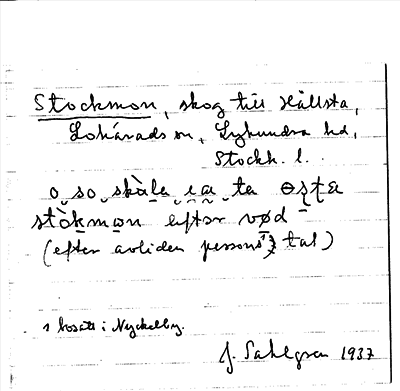 Stockmon, skog till Hällsta,
Lohärads sn, Lyhundra hd,
Stockh. l.
o so skàle ta
stòkmon efter vød
(efter avliden persons¹) tal)
1 bosatt i Nyckelby.
J. Sahlgren 1937